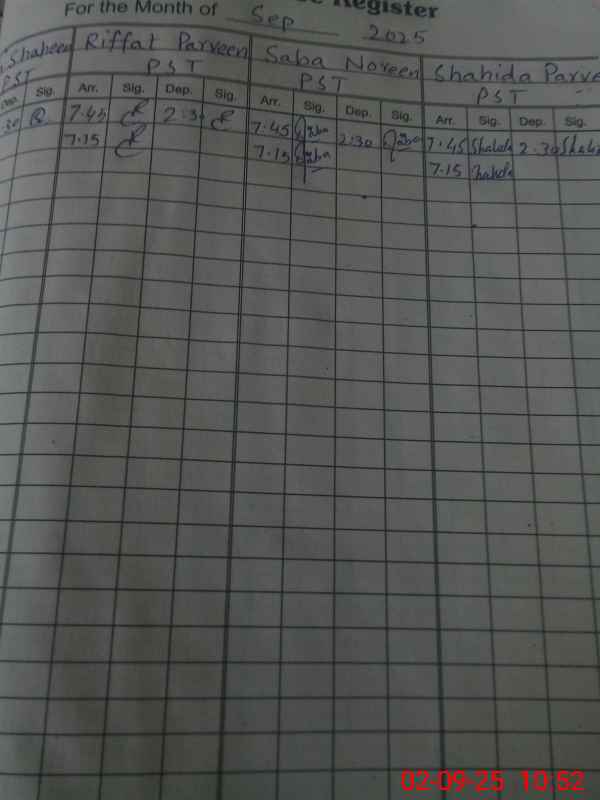 Register
For the Month of Sep 2025
Shaheen Riffat Parveen Saba Noreen Shahida Parve
PST PST PST PST
Dep. Sig. Arr. Sig. Dep. Sig. Arr. Sig. Dep. Sig. Arr. Sig. Dep. Sig.
:30 7.45 2:30 7.45 Saba 2:30 Saba 7.45 Shahida 2:30 Shahi
7.15 7.15 Saba 7.15 Shahida
02-09-25 10:52